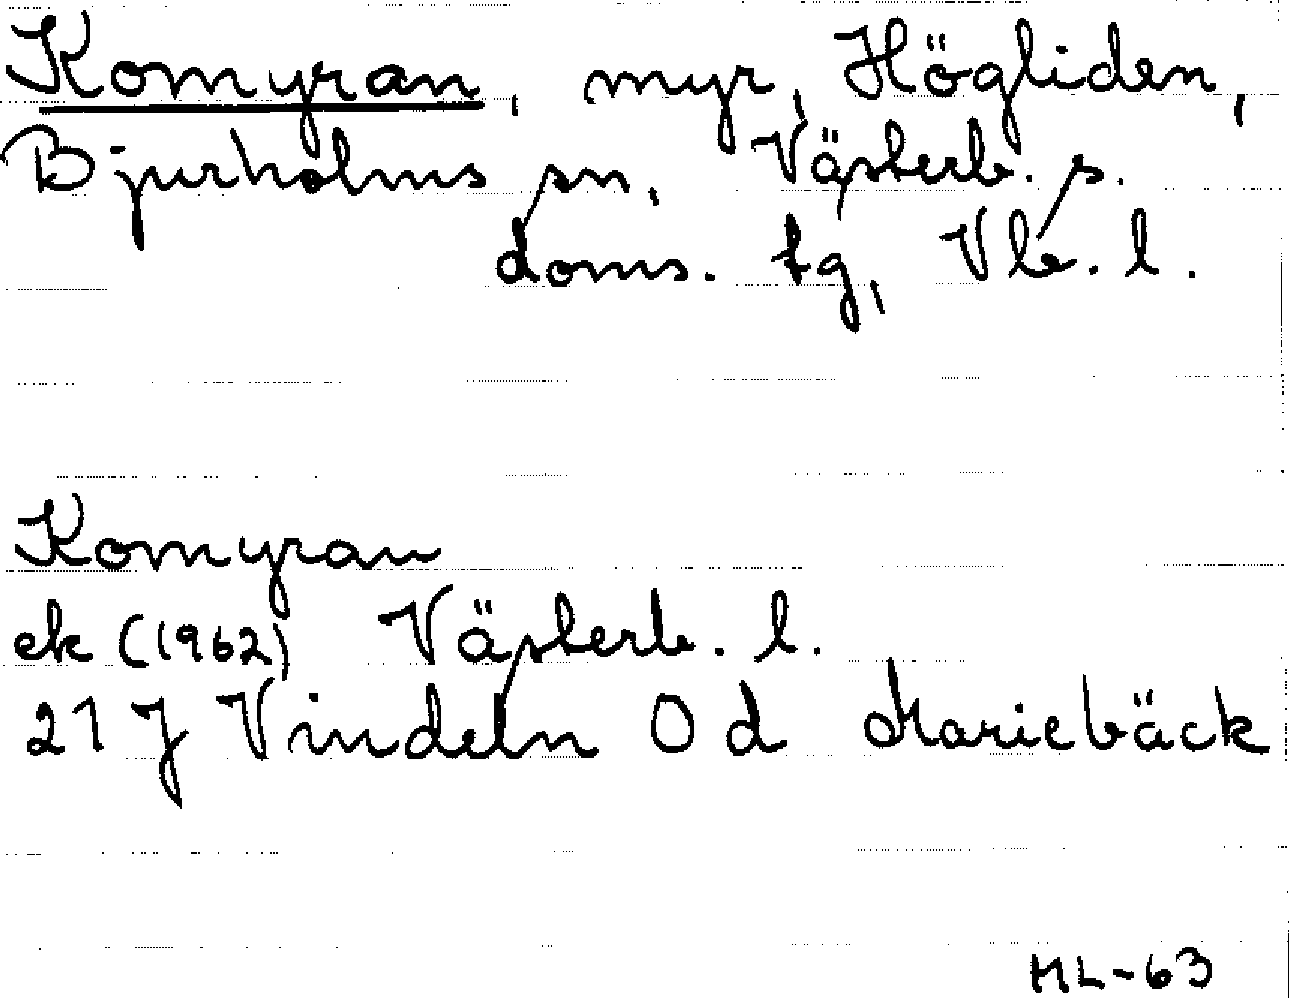 Komyran, myr, Högliden,
Bjurholms sn, Västerb. s.
doms. tg, Vb. l.
Komyran
ek (1962) Västerb. l.
21 J Vindeln 0 d Mariebäck
ML-63